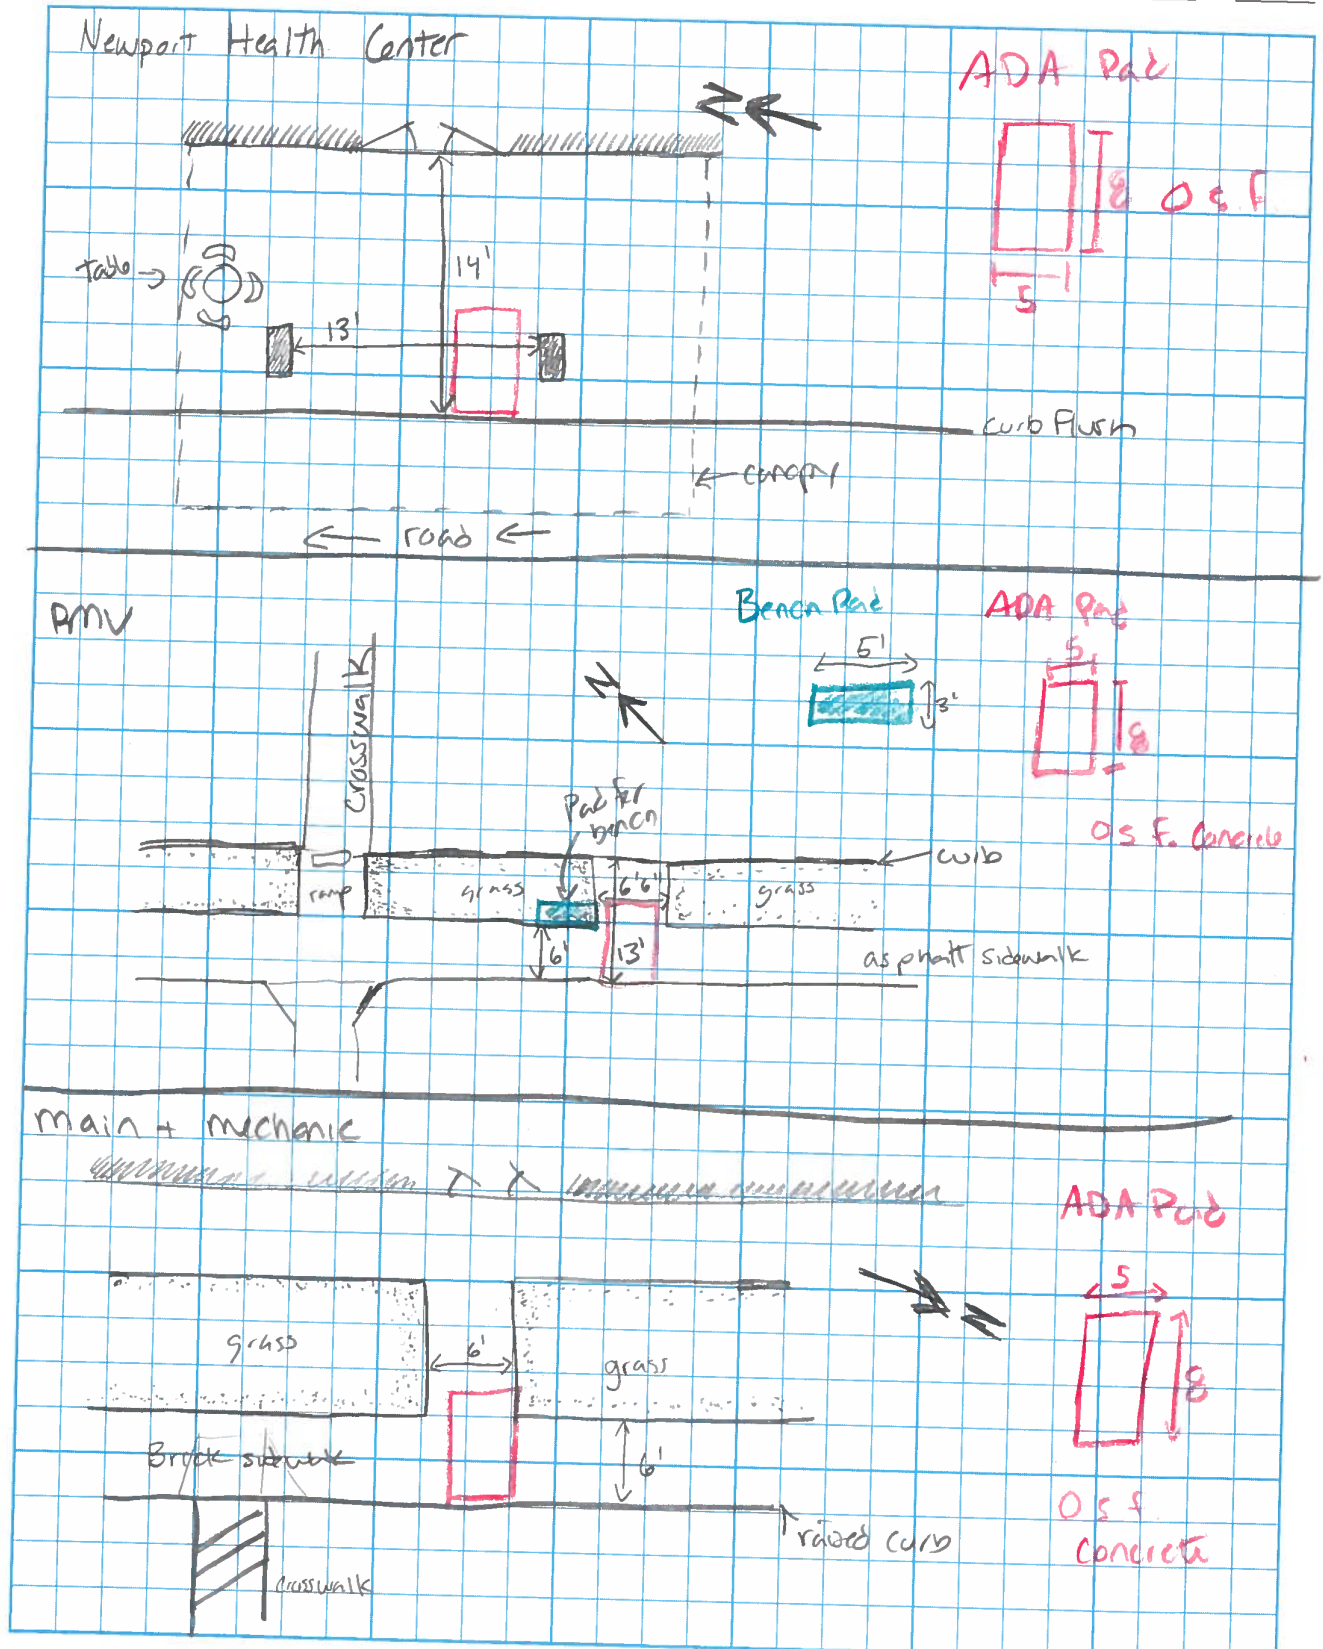 Newport Health Center
ADA Pad
N
8
0 s f
5
14'
Table
13'
curb Flush
canopy
road
RMV
Bench Pad
5'
3'
ADA Pad
5
8
0 s F. Concrete
N
crosswalk
Pad for
bench
curb
ramp
grass
6'6"
grass
6'
13'
asphalt sidewalk
main + mechanic
ADA Pad
5
8
0 s f
Concrete
N
grass
6'
grass
Brick sidewalk
6'
raised curb
crosswalk